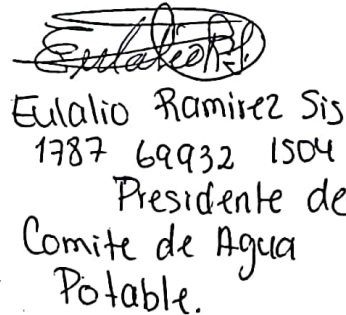 Eulalio R.S.
Eulalio Ramirez Sis
1787 69932 1504
Presidente de
Comite de Agua
Potable.